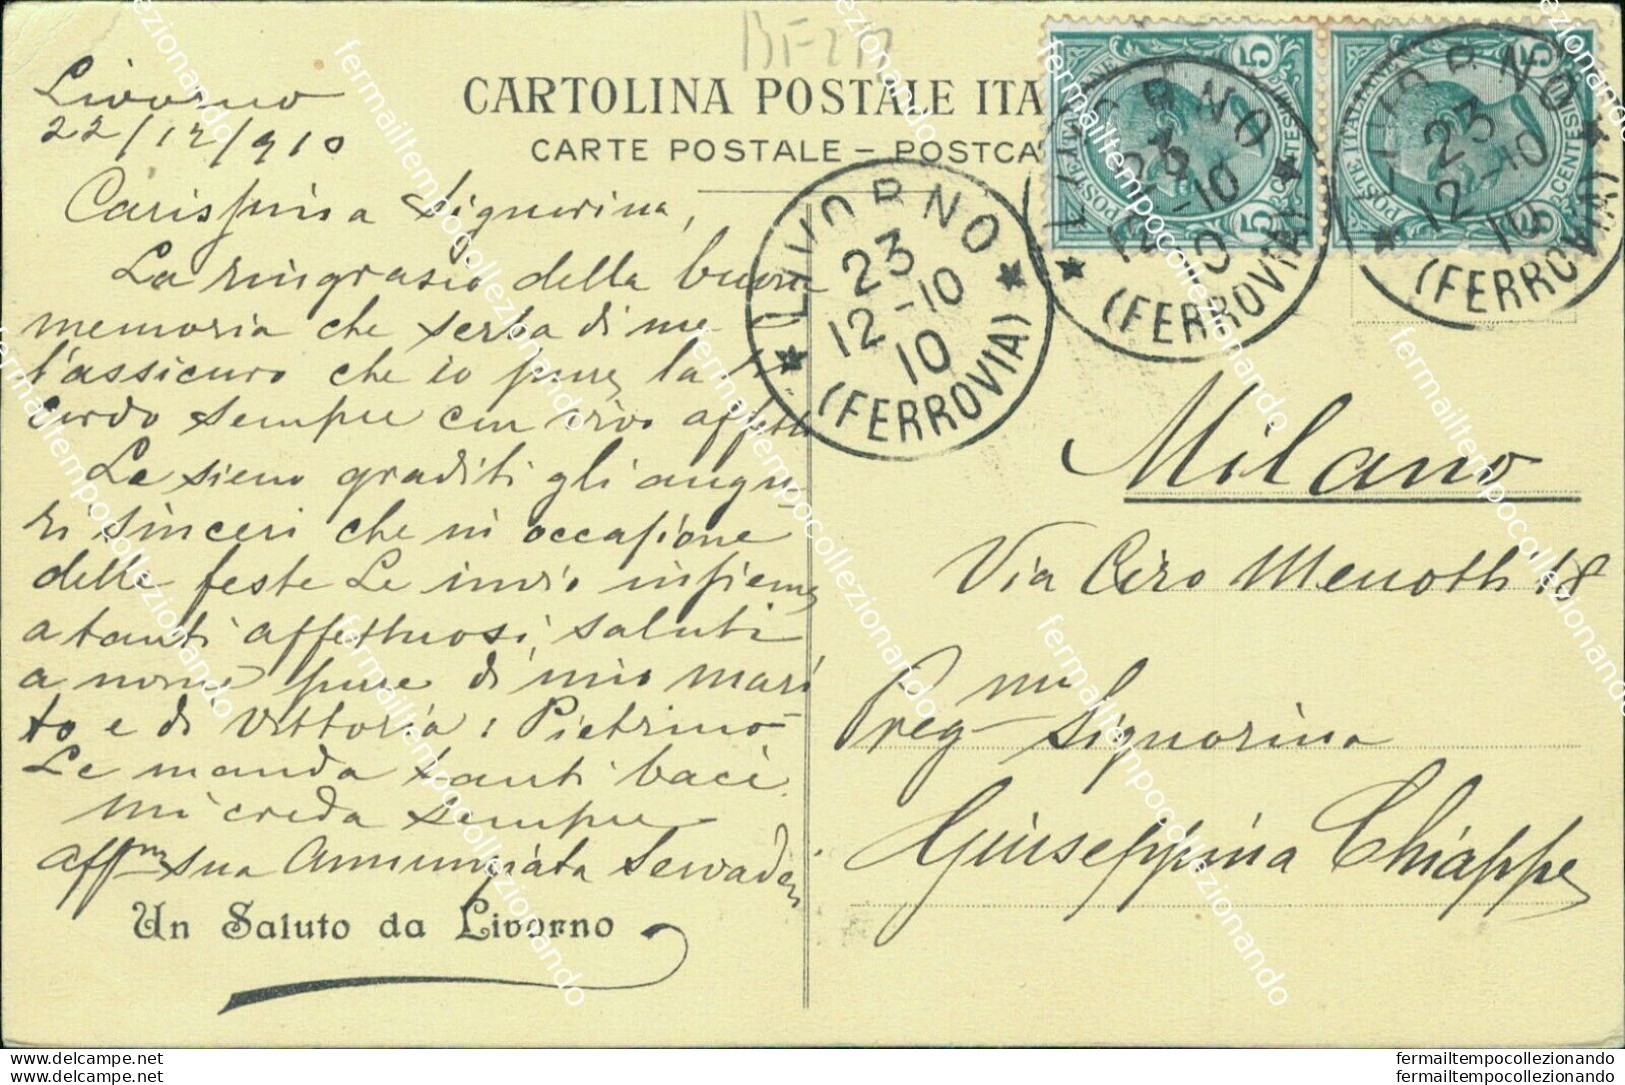 BF272
CARTOLINA POSTALE ITA
CARTE POSTALE - POSTCA
Livorno
22/12/910
Carissima Signorina,
La ringrazio della buona
memoria che serba di me e
l'assicuro che io pure la ri
cordo sempre con vivo affetto
Le sieno graditi gli augu
ri sinceri che in occasione
delle feste Le invio insieme
a tanti affettuosi saluti
a nome pure di mio mari
to e di Vittoria; Pietrino
Le manda tanti baci.
mi creda sempre
aff.ma sua Annunziata
Un Saluto da Livorno
LIVORNO
23
12-10
10
(FERROVIA)
LIVORNO
23
12-10
10
(FERROVIA)
LIVORNO
23
12-10
10
(FERROVIA)
5 POSTE ITALIANE CENTESIMI 5
5 POSTE ITALIANE CENTESIMI 5
Milano
Via Ciro Menotti 18
Preg.ma Signorina
Giuseppina Chiappe
fermailtempocollezionando
www.delcampe.net
Un Saluto da Livorno
fermailtempocollezionando
fermailtempocollezionando